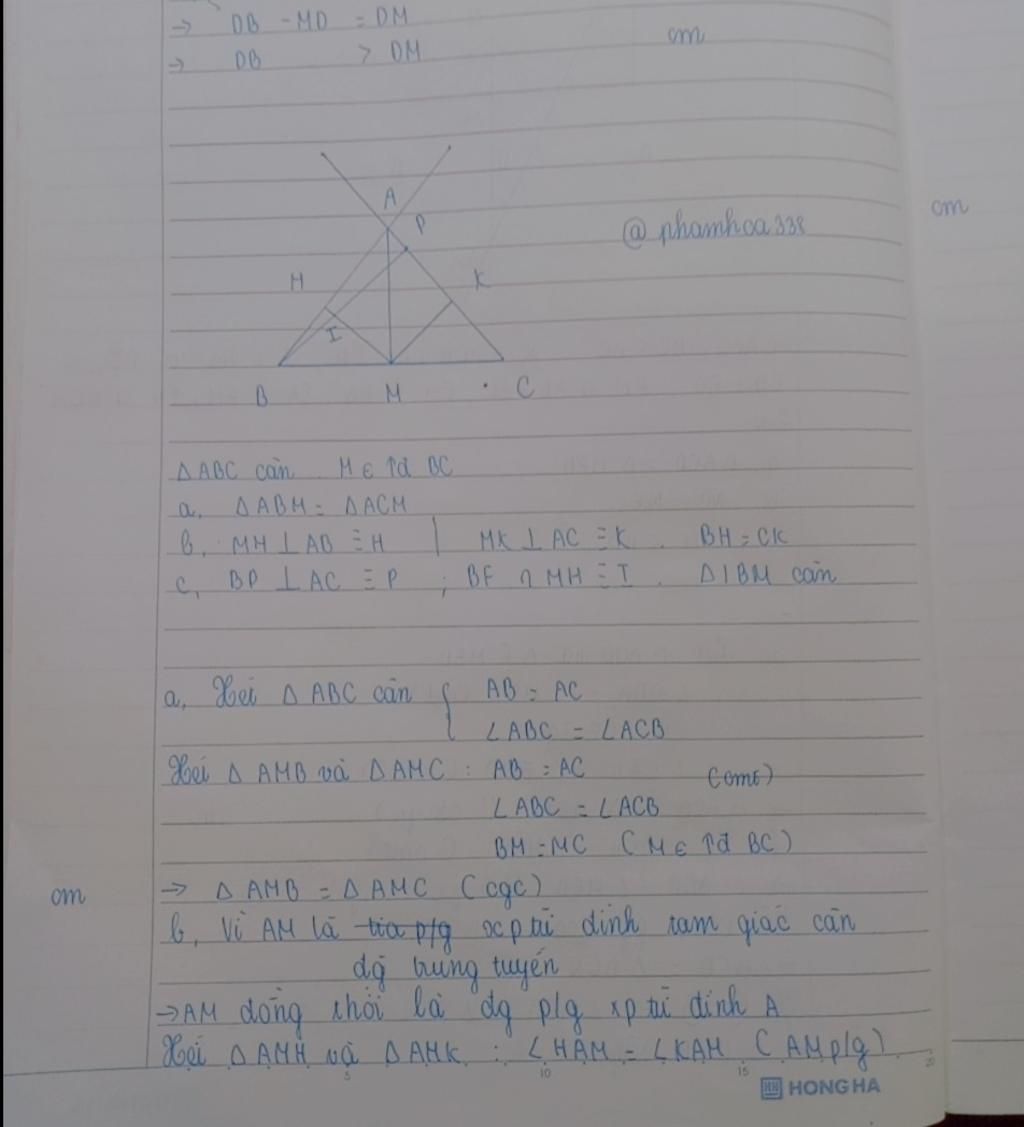 → DB - MD = DM
→ DB > DM
cm
@phamhoa338
cm
A
P
H
K
I
B M C
△ABC cân M ∈ tđ BC
a, △ABM = △ACM
b, MH ⊥ AB ≡ H | MK ⊥ AC ≡ K . BH = CK
c, BP ⊥ AC ≡ P ; BF ∩ MH ≡ I . △IBM cân
a, Xét △ABC cân { AB = AC
∠ABC = ∠ACB
Xét △AMB và △AMC : AB = AC (cmt)
∠ABC = ∠ACB
BM = MC (M ∈ tđ BC)
cm
→ △AMB = △AMC (cgc)
b, Vì AM là tia p/g xp từ đỉnh tam giác cân
đg trung tuyến
→ AM đồng thời là đg p/g xp từ đỉnh A
Xét △AMH và △AMK : ∠HAM = ∠KAM (AM p/g)
5 10 15 20
HH HONG HA